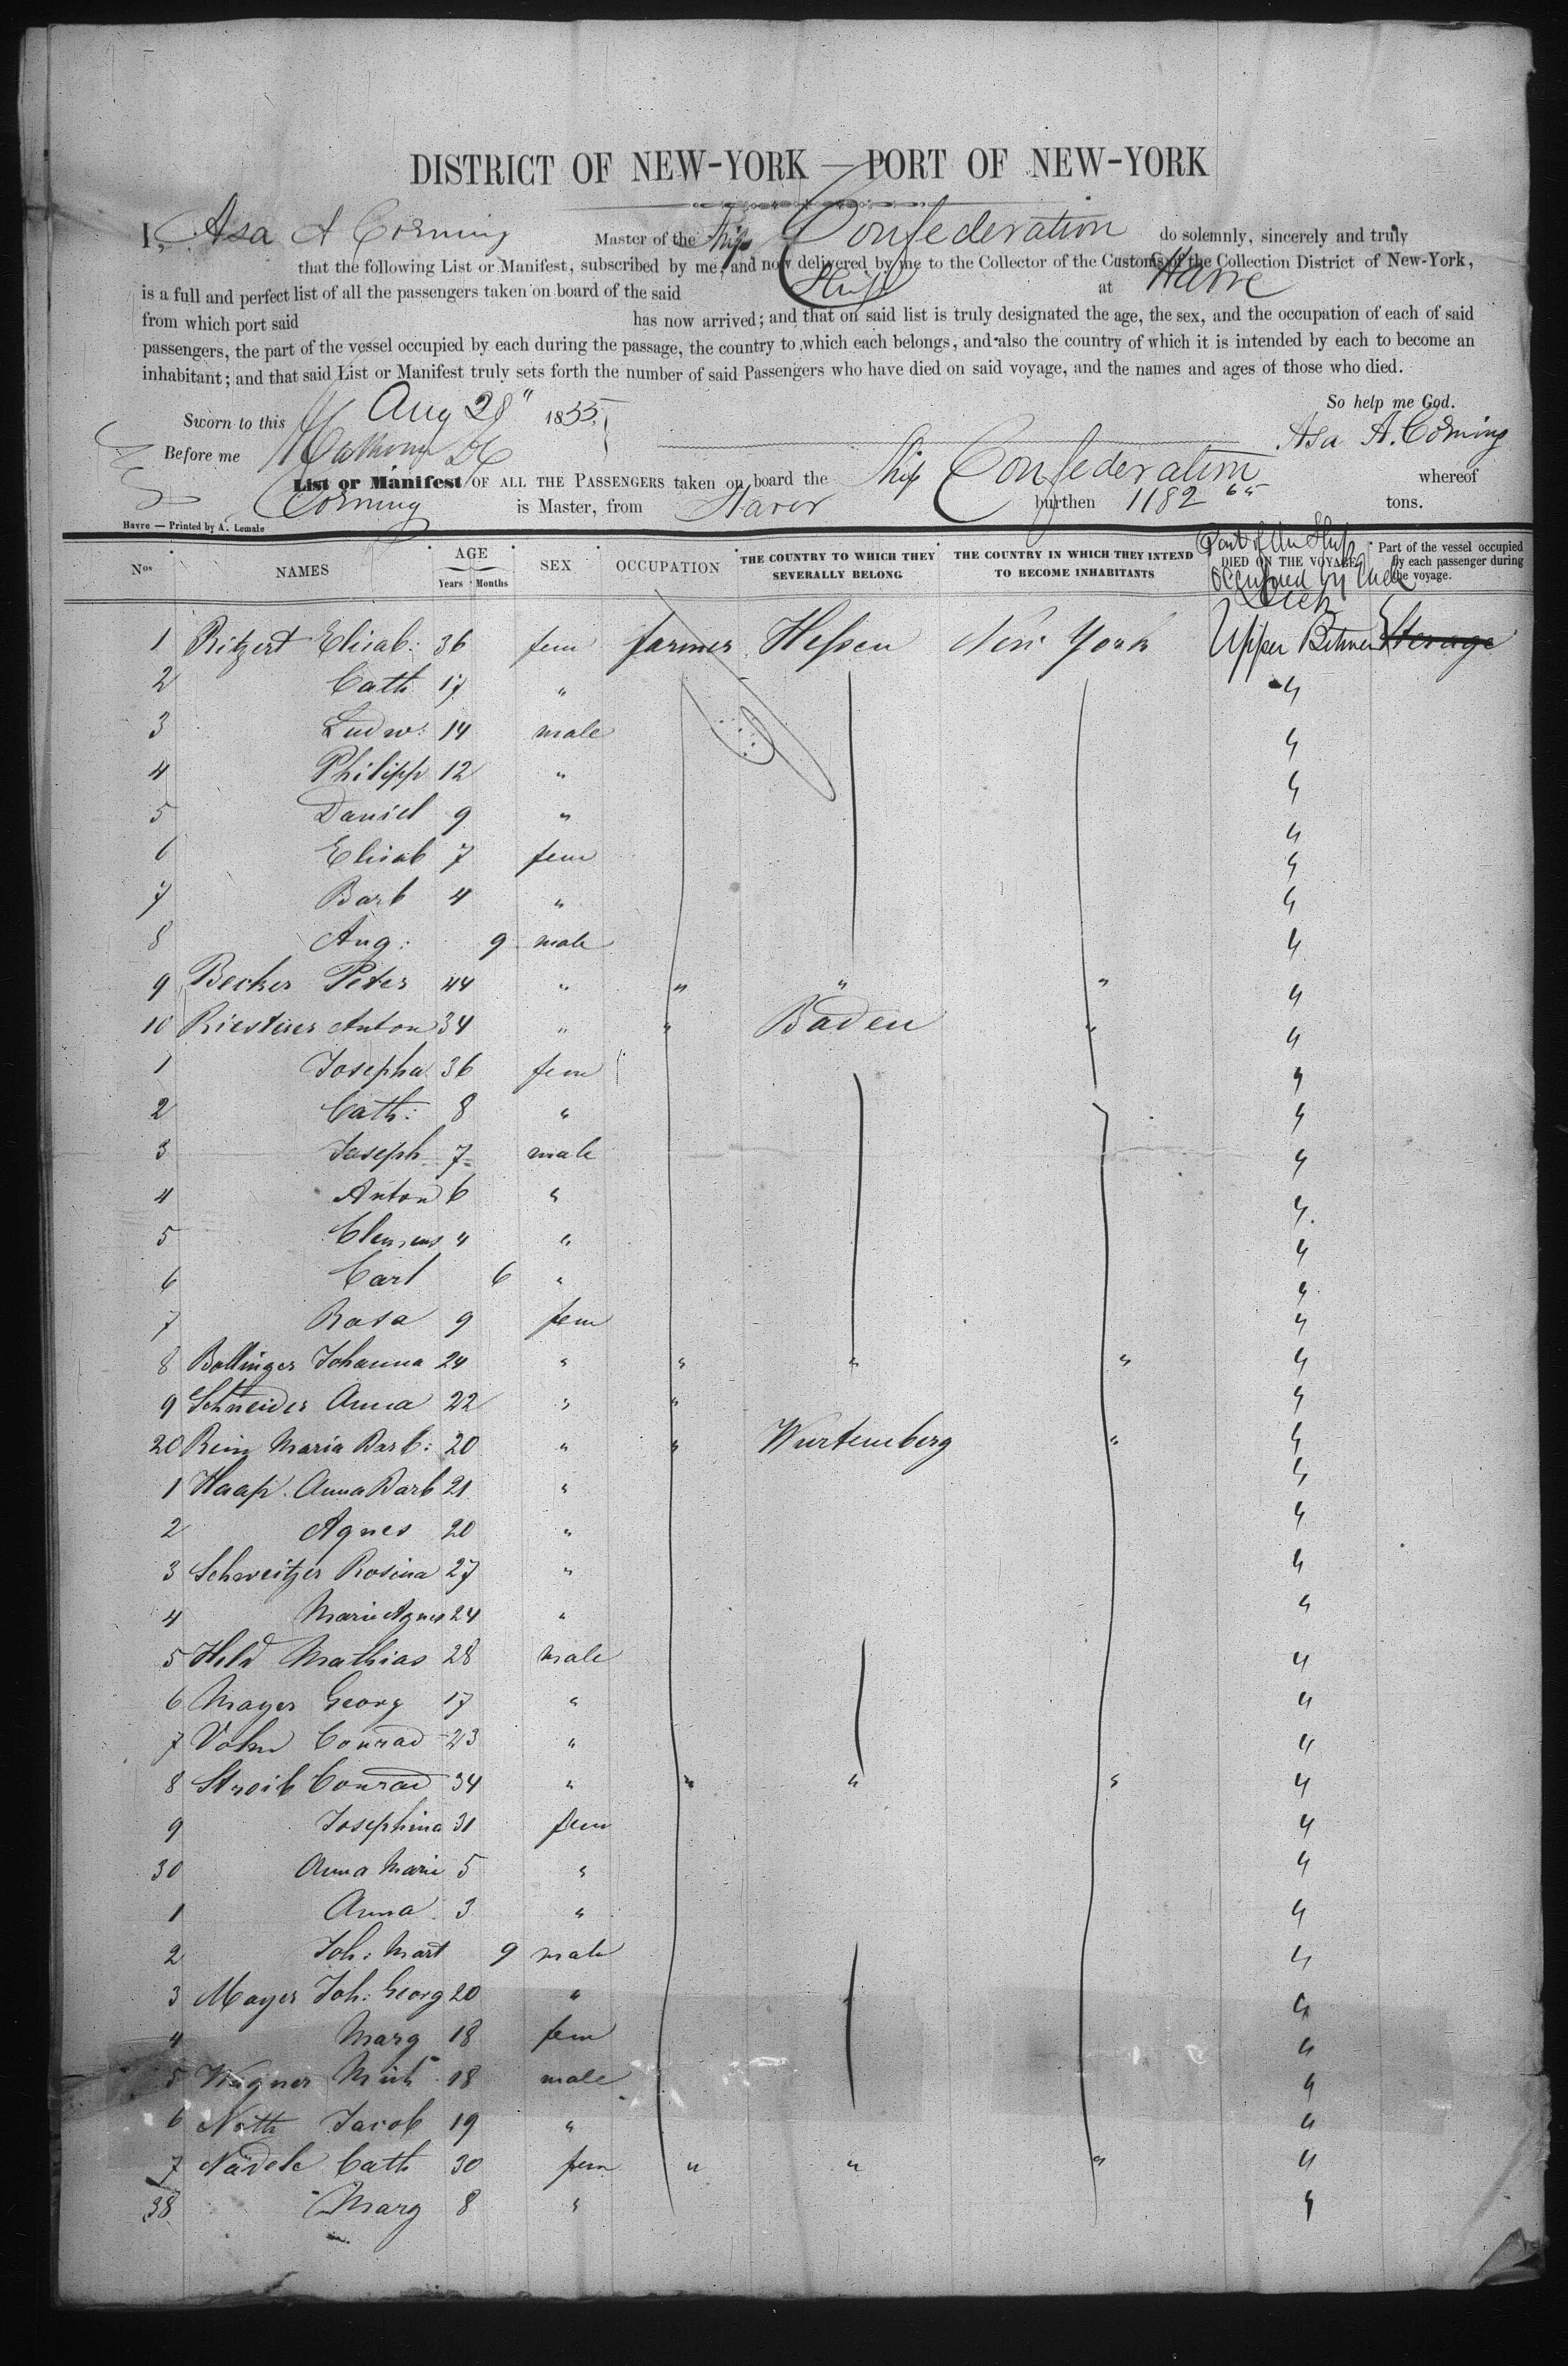 DISTRICT OF NEW-YORK — PORT OF NEW-YORK
I, Asa A Corning Master of the Ship Confederation do solemnly, sincerely and truly
that the following List or Manifest, subscribed by me, and now delivered by me to the Collector of the Customs of the Collection District of New-York,
is a full and perfect list of all the passengers taken on board of the said Ship at Havre
from which port said has now arrived; and that on said list is truly designated the age, the sex, and the occupation of each of said
passengers, the part of the vessel occupied by each during the passage, the country to which each belongs, and also the country of which it is intended by each to become an
inhabitant; and that said List or Manifest truly sets forth the number of said Passengers who have died on said voyage, and the names and ages of those who died.
So help me God.
Sworn to this Aug 28" 1855. Asa A. Corning
Before me
List or Manifest OF ALL THE PASSENGERS taken on board the Ship Confederation whereof
Corning is Master, from Havre burthen 1182 65 tons.
Havre — Printed by A. Lemale
Nos NAMES AGE Years Months SEX OCCUPATION THE COUNTRY TO WHICH THEY SEVERALLY BELONG THE COUNTRY IN WHICH THEY INTEND TO BECOME INHABITANTS DIED ON THE VOYAGE Part of the vessel occupied by each passenger during the voyage.
Part of the Ship occupied by each
Deck
1 Ritzert Elisab: 36 fem farmer Hessen New York Upper Between Sterage
2 Cath 17 " "
3 Ludw: 14 male "
4 Philipp 12 " "
5 Daniel 9 " "
6 Elisab 7 fem "
7 Barb 4 " "
8 Aug: 9 male "
9 Becker Peter 44 " " " " "
10 Riesterer Anton 34 " " Baden " "
1 Josepha 36 fem "
2 Cath: 8 " "
3 Joseph 7 male "
4 Anton 6 " "
5 Clemens 4 " "
6 Carl 6 " "
7 Rosa 9 fem "
8 Bollinger Johanna 24 " " " " "
9 Schneider Anna 22 " " "
20 Rein Maria Barb: 20 " " Wurtemberg " "
1 Haap Anna Barb 21 " "
2 Agnes 20 " "
3 Schweitzer Rosina 27 " "
4 Marie Agnes 24 " "
5 Held Mathias 28 male "
6 Mayer Georg 17 " "
7 Conrad 23 " "
8 Stroib Conrad 34 " " " " "
9 Josephina 31 fem "
30 Anna Marie 5 " "
1 Anna 3 " "
2 Joh: Mart 9 male "
3 Mayer Joh: Georg 20 " "
4 Marg 18 fem "
5 Wagner Mich 18 male "
6 Noth Jacob 19 " "
7 Nädele Cath 30 fem " " " "
38 Marg 8 " "